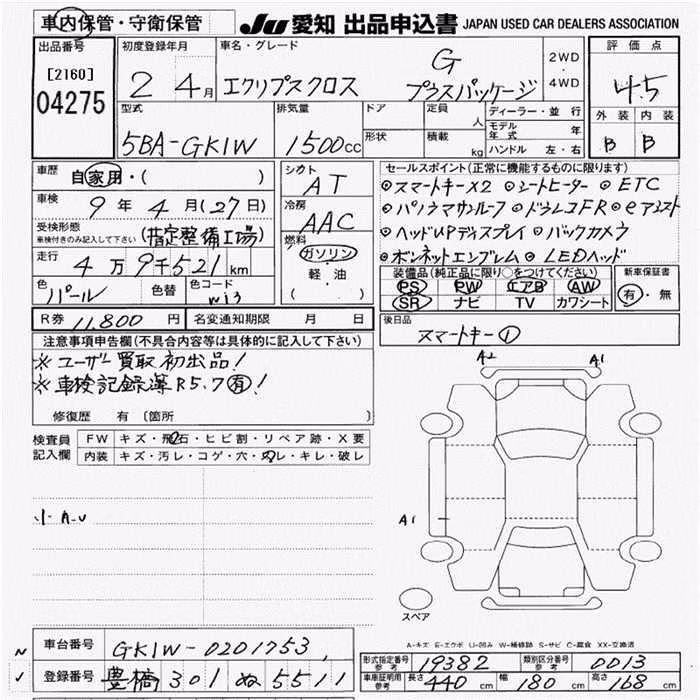 車内保管・守衛保管
JU 愛知 出品申込書 JAPAN USED CAR DEALERS ASSOCIATION
出品番号
[2160]
04275
初度登録年月
2 4月
車名・グレード
エクリプスクロス G プラスパッケージ
2WD・4WD
評価点
4.5
外装 内装
B B
型式
5BA-GK1W
排気量
1500cc
ドア
形状
定員 人
積載 kg
ディーラー・並行
モデル年式 年
ハンドル 左・右
車歴
自家用・( )
車検
9年4月(27日)
受検形態
車検付きのみ記入して下さい
(指定整備工場)
走行
4万9千521km
色
パール
色替
色コード
W13
シフト
AT
冷房
AAC
燃料
ガソリン
軽・油
( )
セールスポイント(正常に機能するものに限ります)
◎スマートキーX2 ◎シートヒーター ◎ETC
◎パノラマサンルーフ ◎ドラレコFR ◎eアシスト
◎ヘッドUPディスプレイ ◎バックカメラ
◎ボンネットエンブレム ◎LEDヘッド
装備品(純正品に限り○をつけてください)
PS PW エアB AW
SR ナビ TV カワシート
新車保証書
有・無
R券 11,800円
名変通知期限 月 日
後日品
スマートキー①
注意事項申告欄(不具合内容等は具体的に記入して下さい)
※ユーザー買取初出品!
※車検記録簿R5.7有!
修復歴 有 〔箇所 〕
検査員記入欄
FW キズ・飛石・ヒビ割・リペア跡・X要
内装 キズ・汚レ・コゲ・穴・スレ・キレ・破レ
小A.U
A2 A1
A1
スペア
A-キズ E-エクボ U-凹み W-補修跡 S-サビ C-腐食 XX-交換済
車台番号
GK1W-0201753
登録番号
豊橋 301 ぬ 5511
形式指定番号 参考
19382
類別区分番号 参考
0013
車庫証明用 参考
長さ 440cm 幅 180cm 高さ 168cm